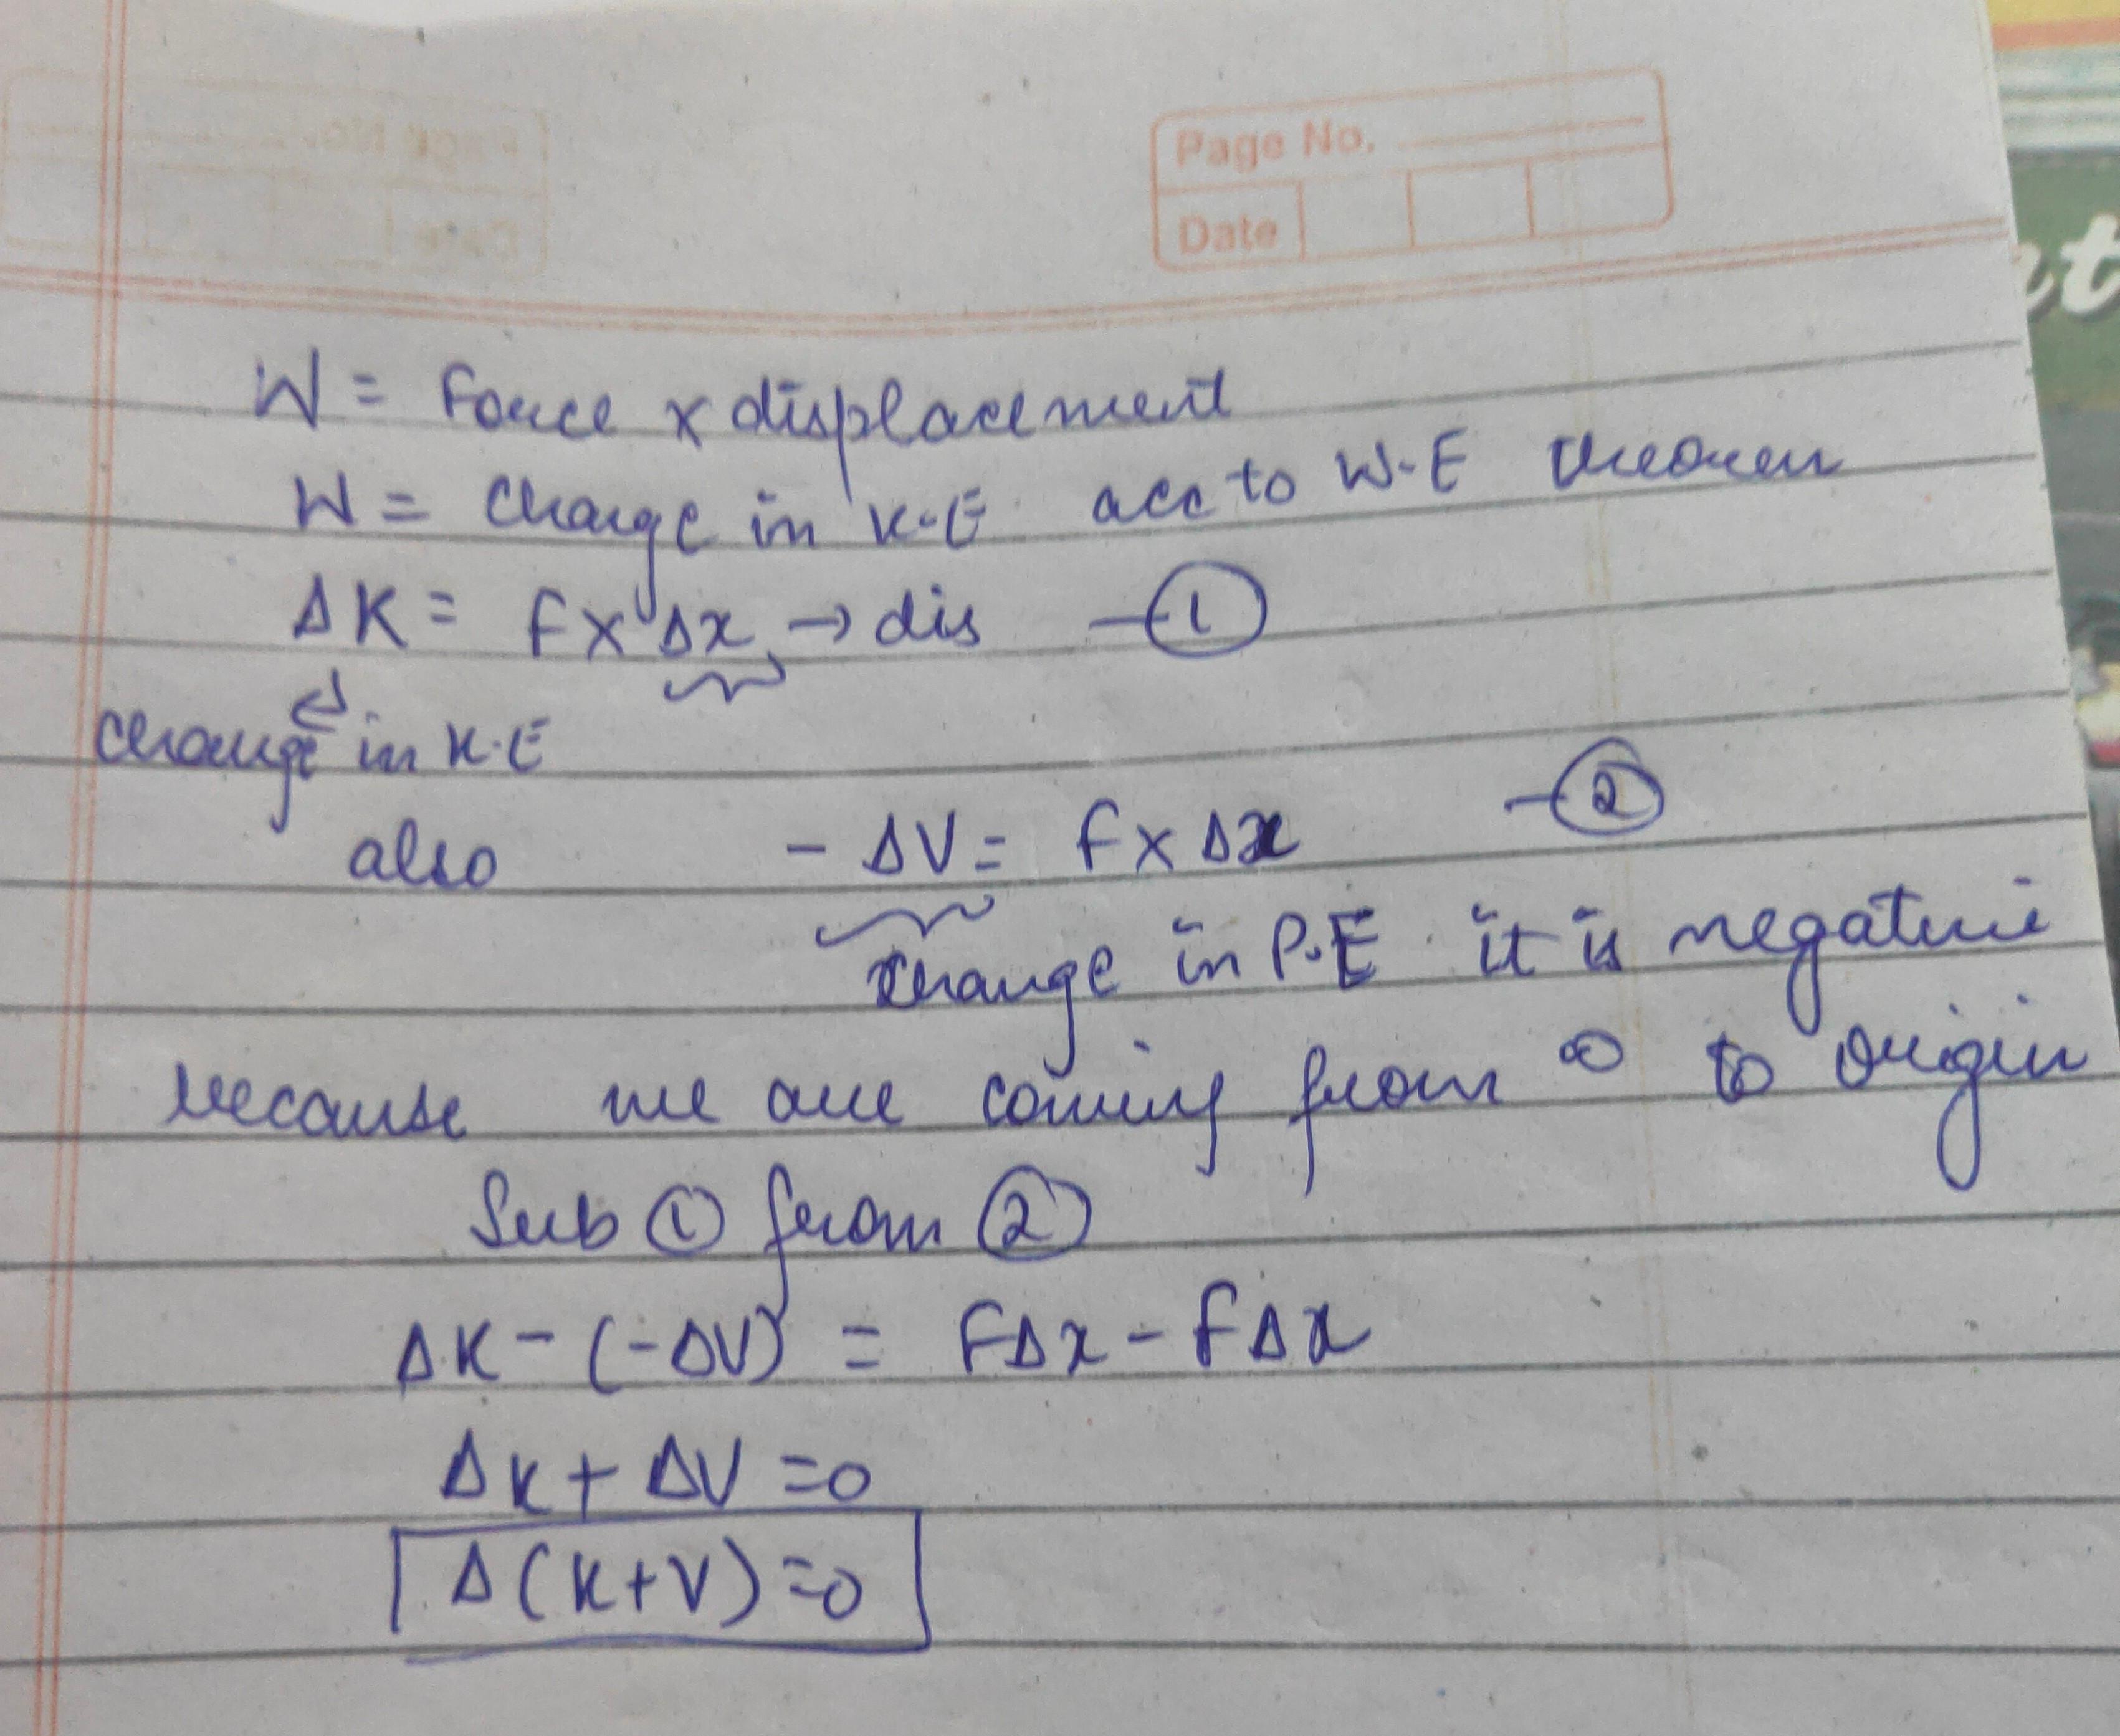 Page No.
Date
W = Force x displacement
W = Change in K.E acc to W.E theorem
ΔK = F x Δx → dis — ①
change in K.E
also - ΔV = F x Δx — ②
change in P.E it is negative
because we are coming from ∞ to origin
Sub ① from ②
ΔK - (-ΔV) = FΔx - FΔx
ΔK + ΔV = 0
Δ(K+V) = 0